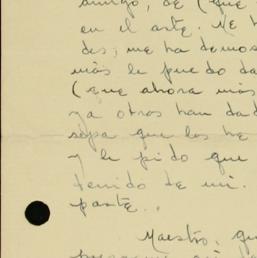 amigo, de (que
en el arte. Me h
des; me ha demos
más le puedo da
(que ahora más
ya otros han dad
sepa que los he
y le pido que
tenido de mi
parte..
Maestro, qu